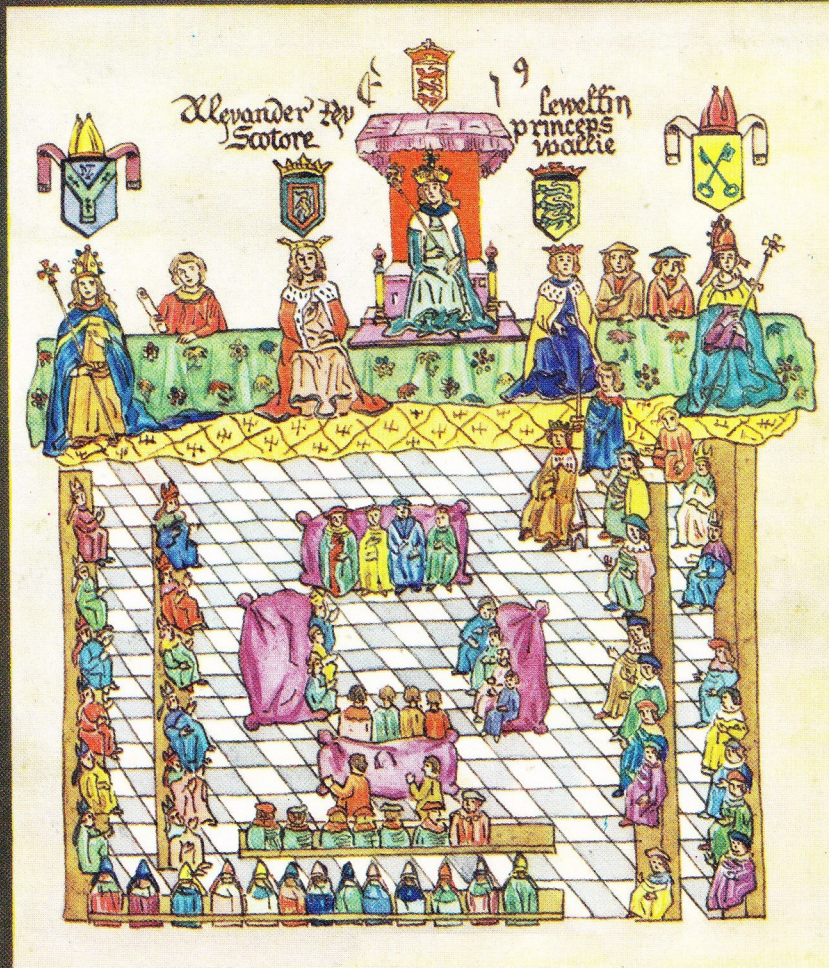 E 1 9
Alexander Rex
Scotore
Lewellin
princeps
wallie